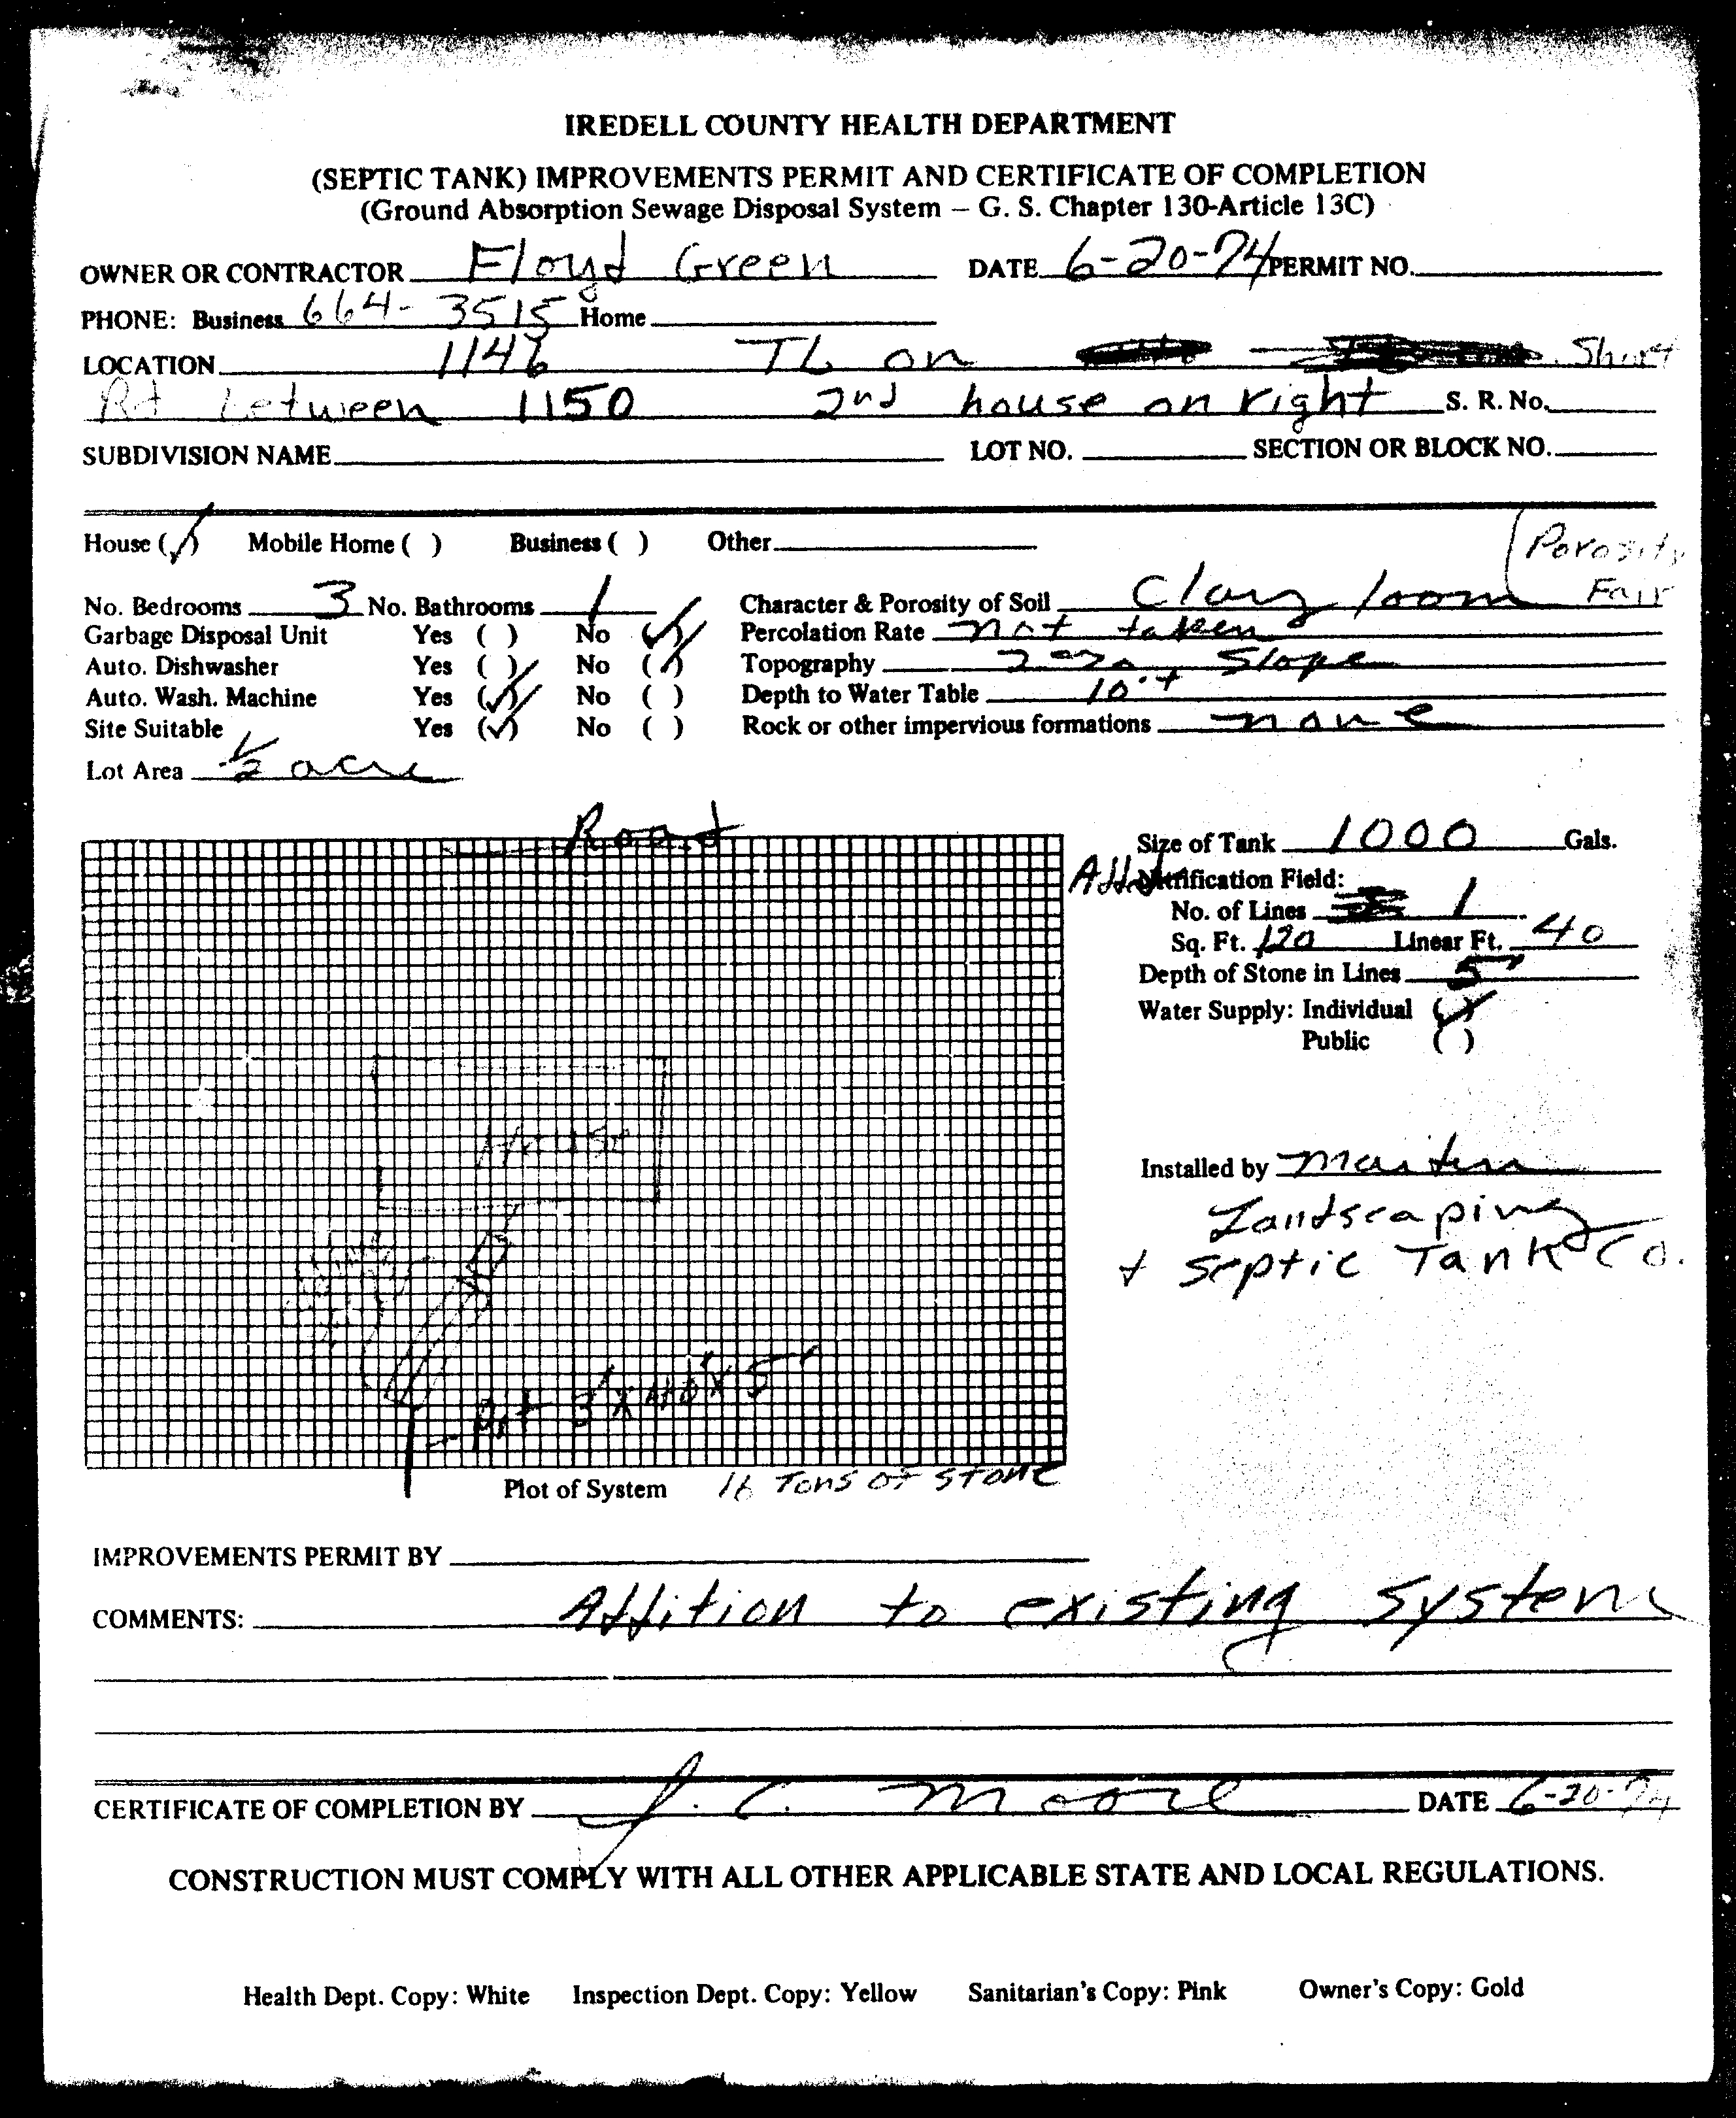 IREDELL COUNTY HEALTH DEPARTMENT
(SEPTIC TANK) IMPROVEMENTS PERMIT AND CERTIFICATE OF COMPLETION
(Ground Absorption Sewage Disposal System – G. S. Chapter 130-Article 13C)
OWNER OR CONTRACTOR Floyd Green DATE 6-20-74 PERMIT NO.
PHONE: Business 664-3515 Home
LOCATION 1146 TL on Short
Rd between 1150 2nd house on right S. R. No.
SUBDIVISION NAME LOT NO. SECTION OR BLOCK NO.
House (✓) Mobile Home ( ) Business ( ) Other
(Porosity
No. Bedrooms 3 No. Bathrooms 1 Character & Porosity of Soil Clay loom Fair
Garbage Disposal Unit Yes ( ) No (✓) Percolation Rate not taken
Auto. Dishwasher Yes ( ) No (✓) Topography Slope
Auto. Wash. Machine Yes (✓) No ( ) Depth to Water Table 10'+
Site Suitable Yes (✓) No ( ) Rock or other impervious formations none
Lot Area 1/2 acre
Road
Size of Tank 1000 Gals.
Nitrification Field:
No. of Lines 1
Sq. Ft. 120 Linear Ft. 40
Depth of Stone in Lines 5'
Water Supply: Individual (✓)
Public ( )
House
Installed by Martin
Landscaping
+ Septic Tank Co.
Pit 3' x 40' x 5'
Plot of System 16 Tons of stone
IMPROVEMENTS PERMIT BY
COMMENTS: Addition to existing system
CERTIFICATE OF COMPLETION BY J. C. Moore DATE 6-20-74
CONSTRUCTION MUST COMPLY WITH ALL OTHER APPLICABLE STATE AND LOCAL REGULATIONS.
Health Dept. Copy: White Inspection Dept. Copy: Yellow Sanitarian's Copy: Pink Owner's Copy: Gold